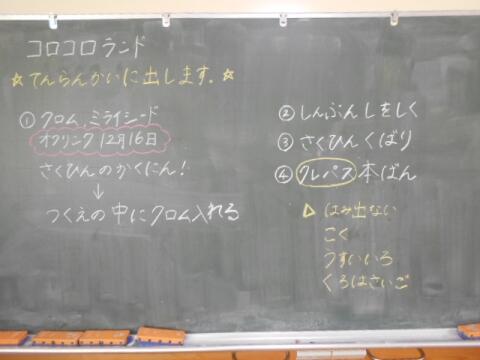 コロコロランド
☆てんらんかいに出します。☆
① クロム ミライシード
オクリンク 12月16日
さくひんのかくにん!
↓
つくえの中にクロム入れる
② しんぶんしをしく
③ さくひんくばり
④ クレパス本ばん
▷ はみ出ない
こく
うすいいろ
くろはさいご